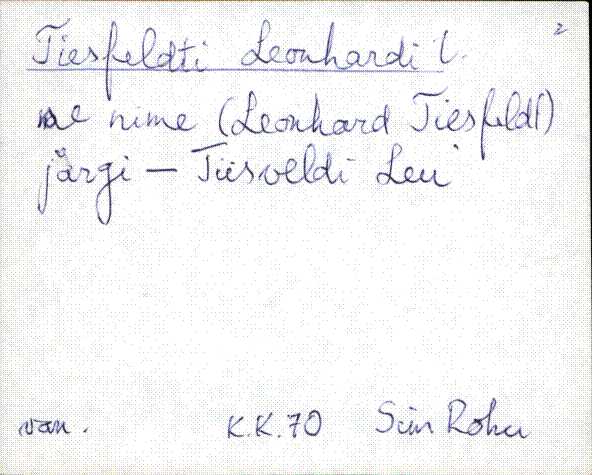 2
Tiesfeldti Leonhardi t.
me nime (Leonhard Tiesfeldt)
järgi — Tiisveldi Leu
van. K.K.70 Siim Roheu